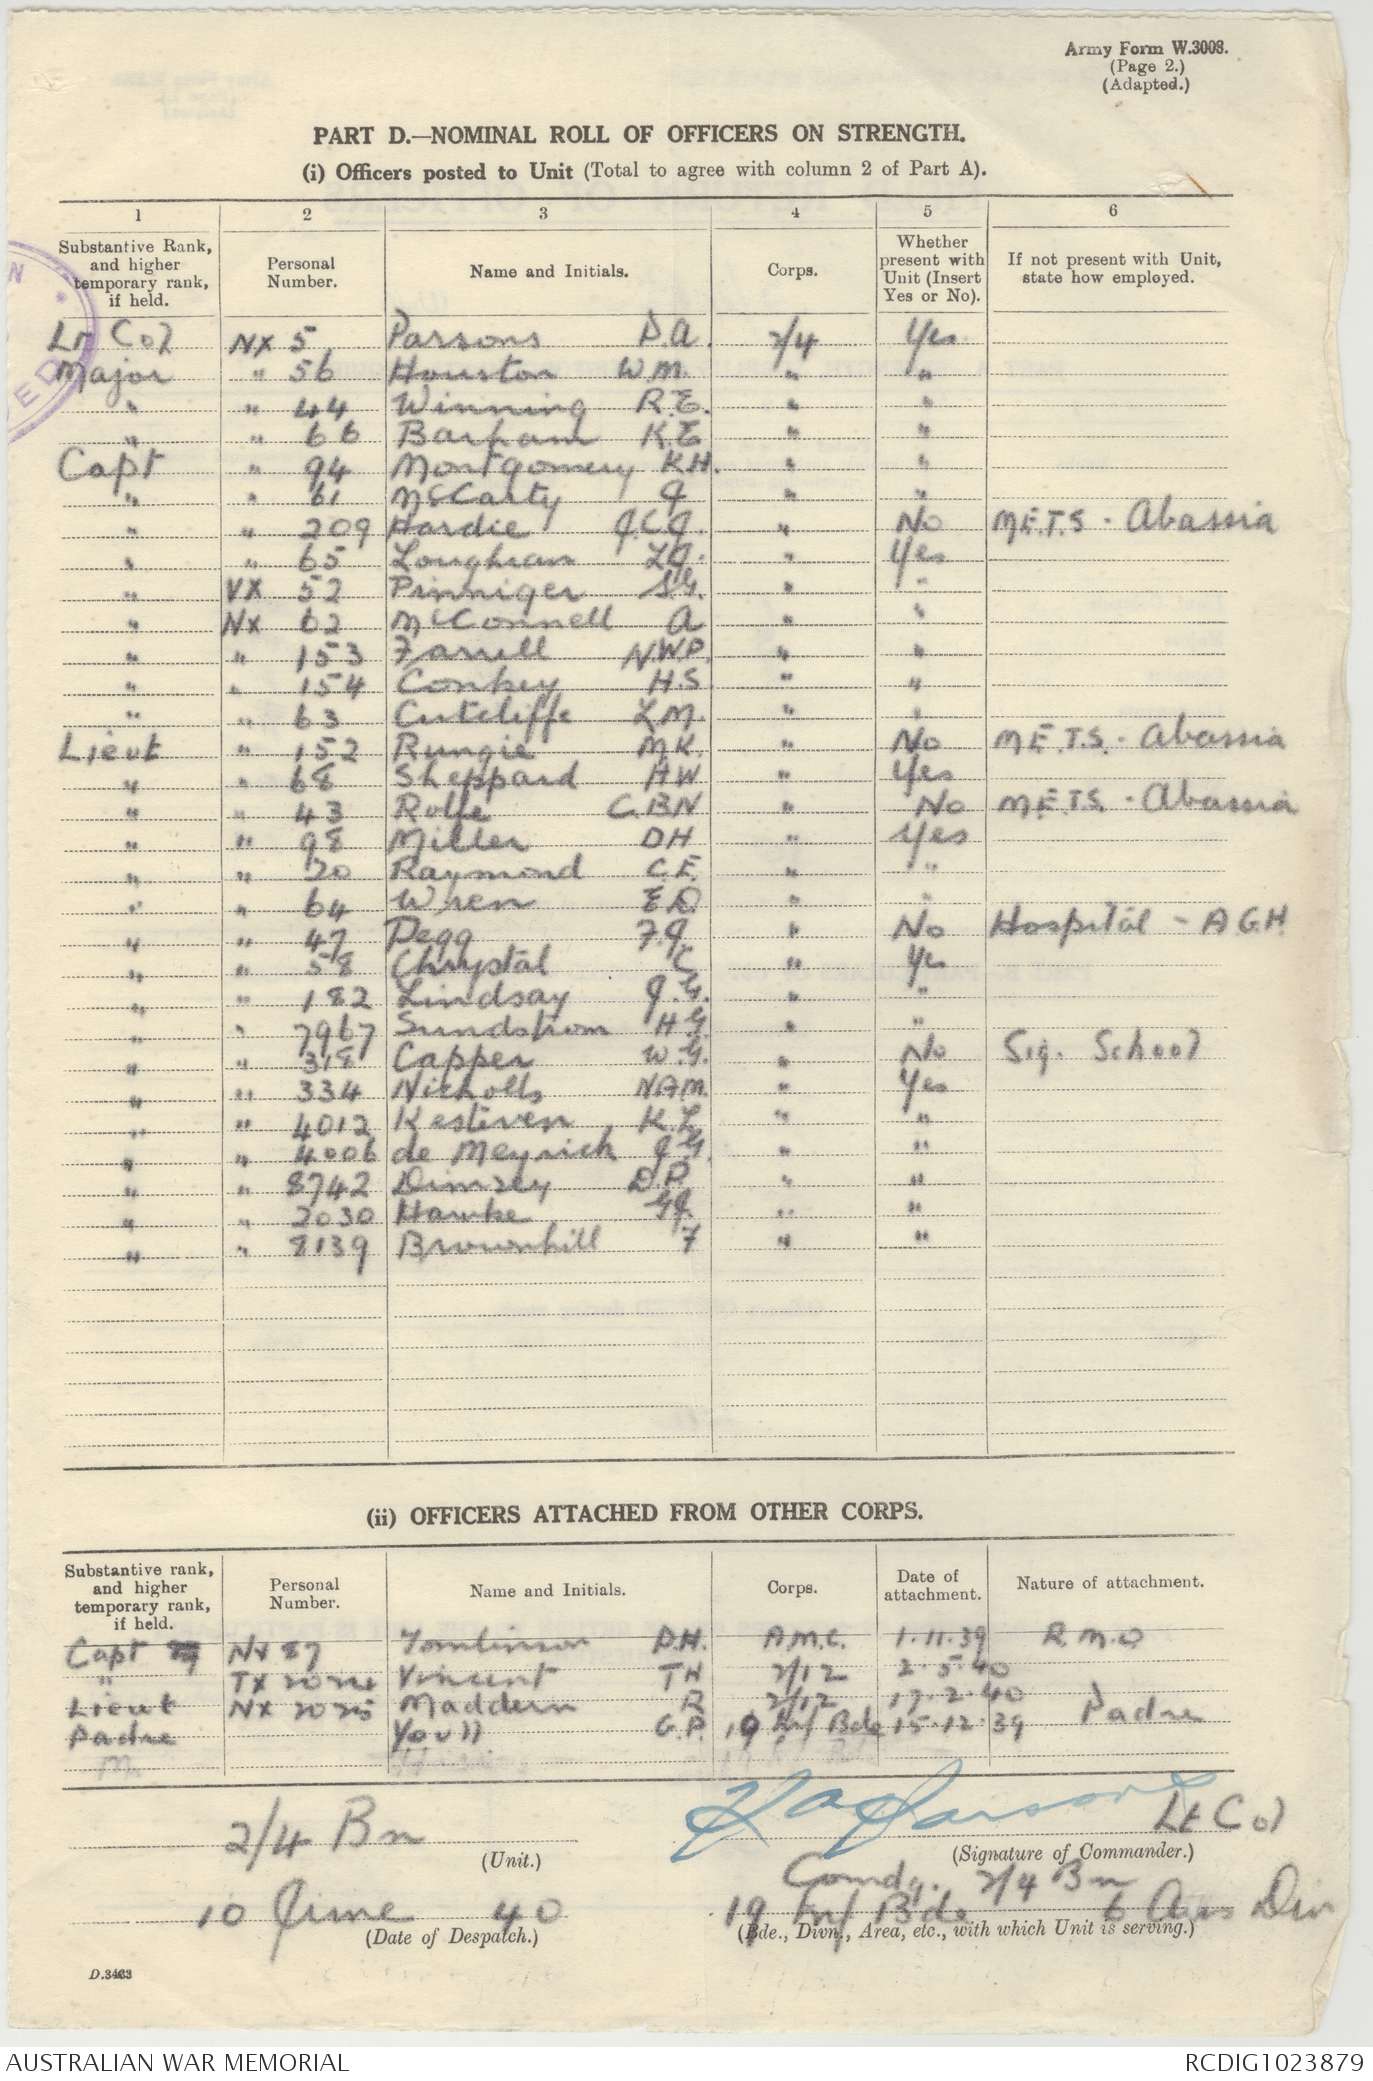 Army Form W.3008.
(Page 2.)
(Adapted.)
PART D.—NOMINAL ROLL OF OFFICERS ON STRENGTH.
(i) Officers posted to Unit (Total to agree with column 2 of Part A).
1 2 3 4 5 6
Substantive Rank, and higher temporary rank, if held. Personal Number. Name and Initials. Corps. Whether present with Unit (Insert Yes or No). If not present with Unit, state how employed.
Lt Col NX 5 Parsons D.A. 2/4 Yes
Major " 56 Houston W.M. " "
" " 44 Winning R.E. " "
" " 66 Barham K.E " "
Capt " 94 Montgomery K.H. " "
" " 61 McCarty J " "
" " 209 Hardie J.C.J. " No M.E.T.S - Abassia
" " 65 Loughran L.J. " Yes
" VX 52 Pinniger S.G. " "
" NX 62 McConnell A " "
" " 153 Farrell N.W.P. " "
" " 154 Conkey H.S. " "
" " 63 Cutcliffe L.M. " "
Lieut " 152 Rungie M.K. " No M.E.T.S. - Abassia
" " 68 Sheppard H W " Yes
" " 43 Rolfe C.B.N " No M.E.T.S. - Abassia
" " 98 Miller D H " Yes
" " 20 Raymond C.E. " "
" " 64 Wren E.D. " "
" " 47 Pegg F.J " No Hospital - A G.H.
" " 58 Chrystal C " Yes
" " 182 Lindsay J.G. " "
" " 7967 Sundstrom H G " "
" " 318 Capper W.G. " No Sig. School
" " 334 Nicholls N A M. " Yes
" " 4012 Kesteven K L " "
" " 4006 de Meyrick J G. " "
" " 8742 Dimsey D.P. " "
" " 2030 Hawke G J. " "
" " 8139 Brownhill F " "
(ii) OFFICERS ATTACHED FROM OTHER CORPS.
Substantive rank, and higher temporary rank, if held. Personal Number. Name and Initials. Corps. Date of attachment. Nature of attachment.
Capt NX 87 Tomlinson D.H. A.M.C. 1.11.39 R.M.O
" TX 2024 Vincent T H 2/12 2.5.40
Lieut NX 2025 Maddern R 2/12 17.2.40
Padre Youll G.P. 19 Inf Bde 15.12.39 Padre
2/4 Bn
(Unit.)
D A Parsons Lt Col
(Signature of Commander.)
Comdg. 2/4 Bn
10 June 40
(Date of Despatch.)
19 Inf Bde 6 Aus Div
(Bde., Divn., Area, etc., with which Unit is serving.)
D.3463
AUSTRALIAN WAR MEMORIAL RCDIG1023879